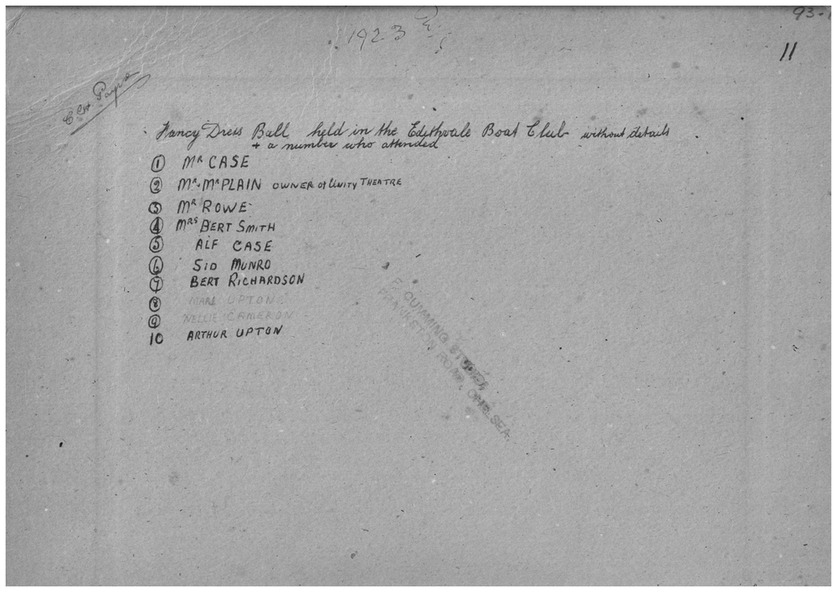 93-
1923
11
Fancy Dress Ball held in the Edithvale Boat Club without details
+ a number who attended
1 Mr CASE
2 Mr. McPLAIN OWNER of UNITY THEATRE
3 Mr ROWE
4 Mrs BERT SMITH
5 ALF CASE
6 SID MUNRO
7 BERT RICHARDSON
8 UPTON
9 NELLIE CAMERON
10 ARTHUR UPTON
CUMMING STUDIO,
ROAD, CHELSEA.